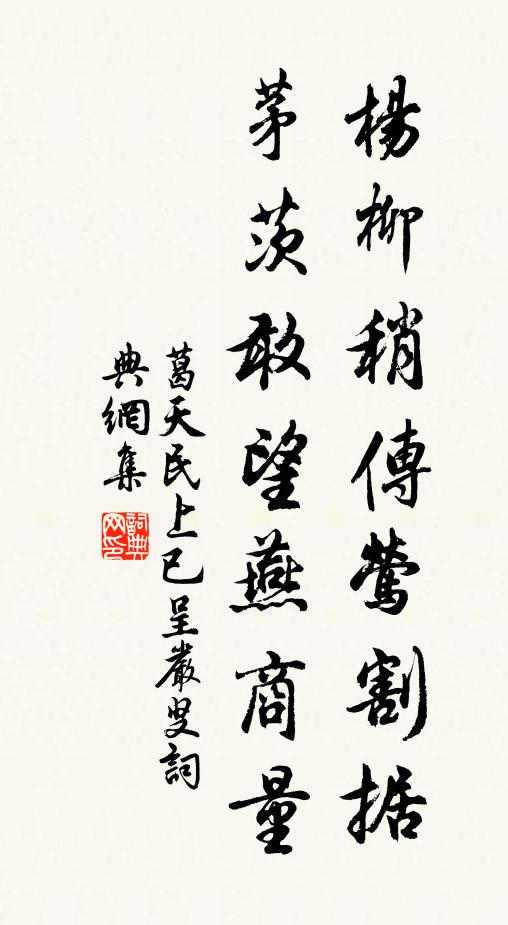 楊柳稍傳鶯割据
茅茨敢望燕商量
葛天民上巳呈嚴叟詞
典網集
詞典
网印